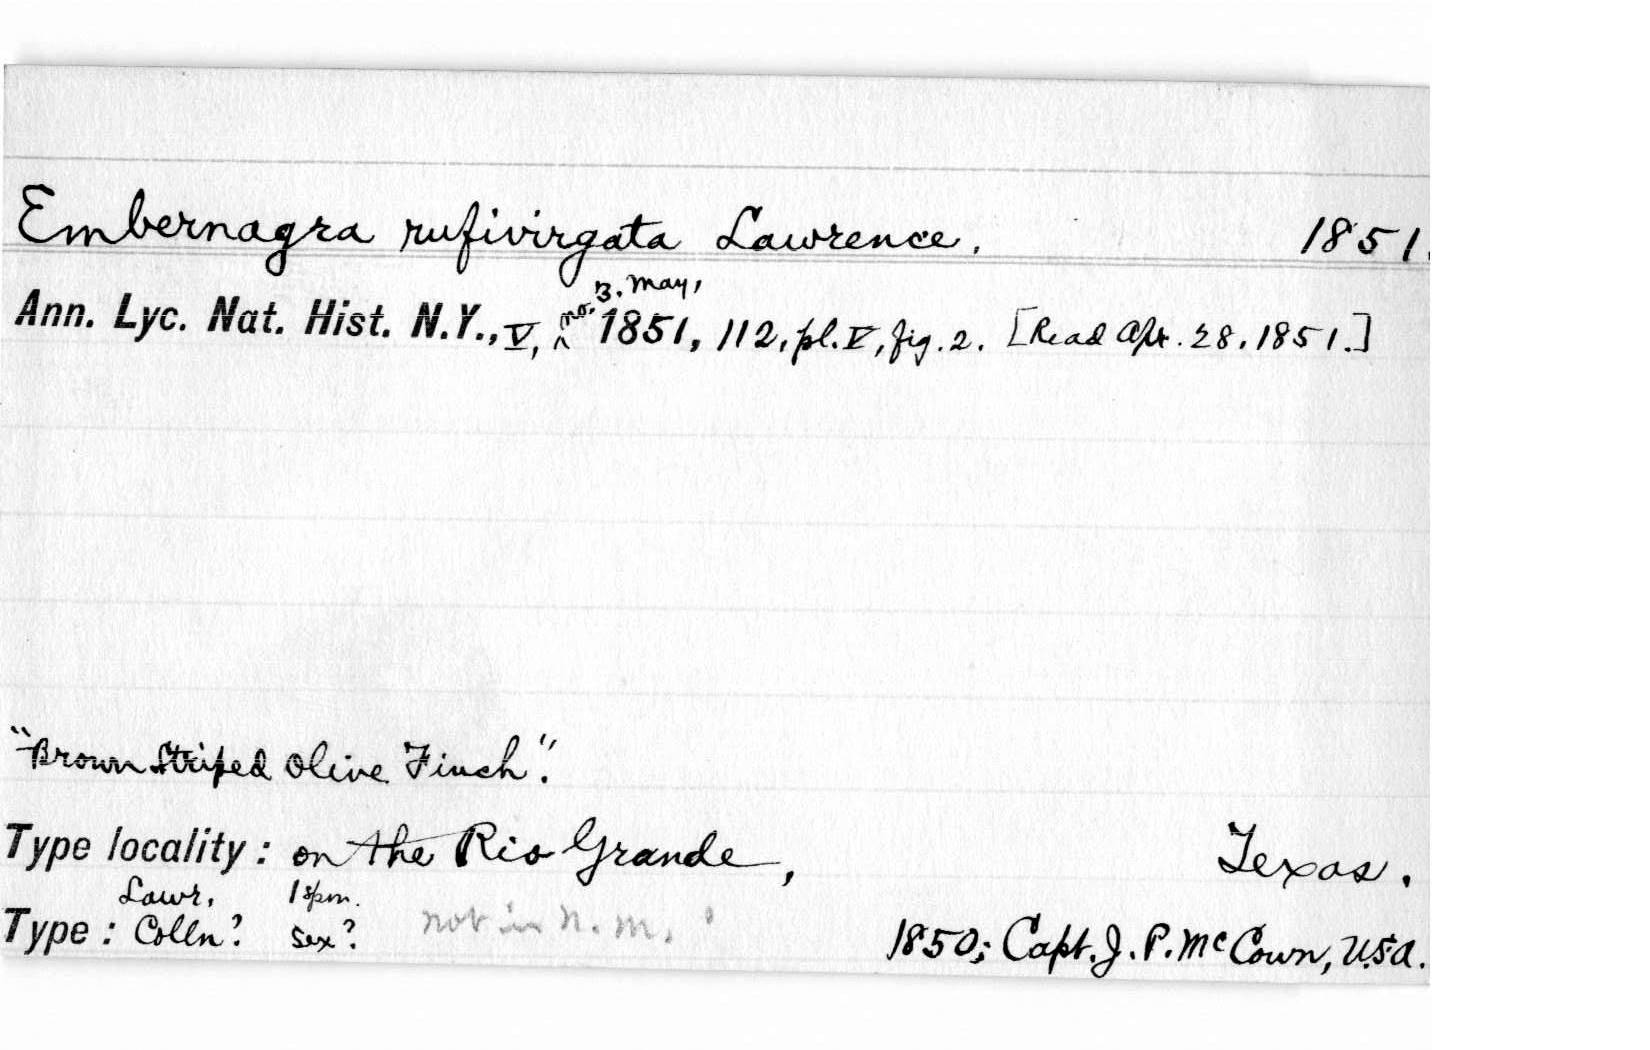 Embernagra rufivirgata Lawrence. 1851.
no. 3. May,
Ann. Lyc. Nat. Hist. N.Y., V, ‸ 1851, 112, pl. V, fig. 2. [Read Apr. 28, 1851.]
"Brown Striped Olive Finch".
Type locality: on the Rio Grande, Texas.
Lawr. 1 spm.
Type: Colln? sex? not in N. M. ? 1850; Capt. J. P. McCown, U.S.A.